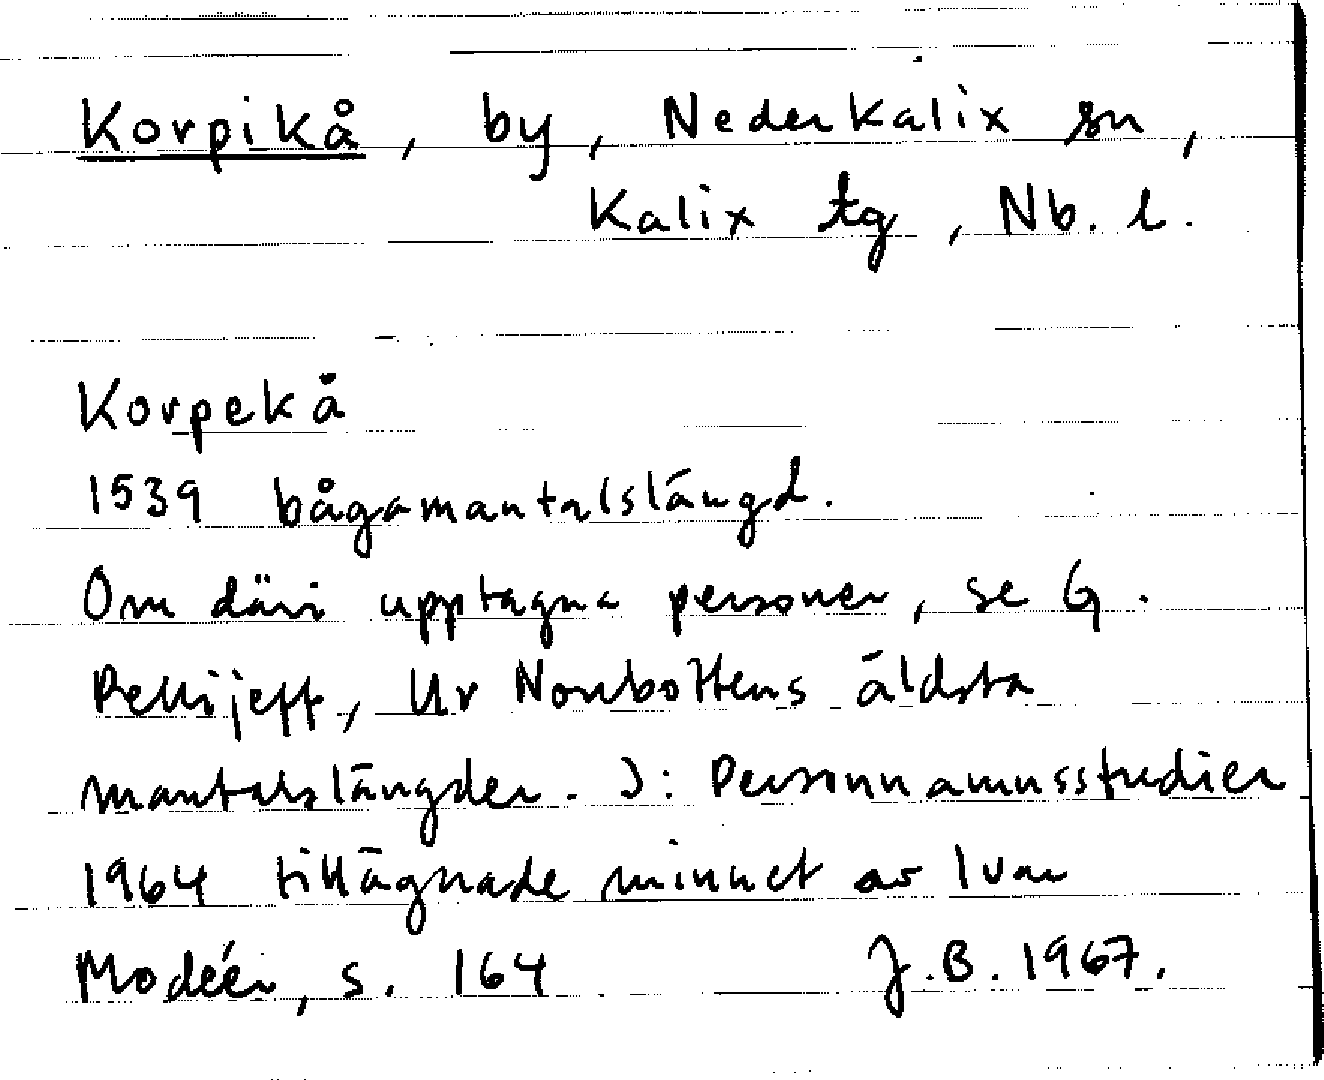 Korpikå, by, Nederkalix sn,
Kalix tg, Nb. l.
Korpekå
1539 bågamantalslängd.
Om däri upptagna personer, se G.
Pellijeff, Ur Norrbottens äldsta
mantalslängder. I: Personnamnsstudier
1964 tillägnade minnet av Ivar
Modéer, s. 164 J.B. 1967.